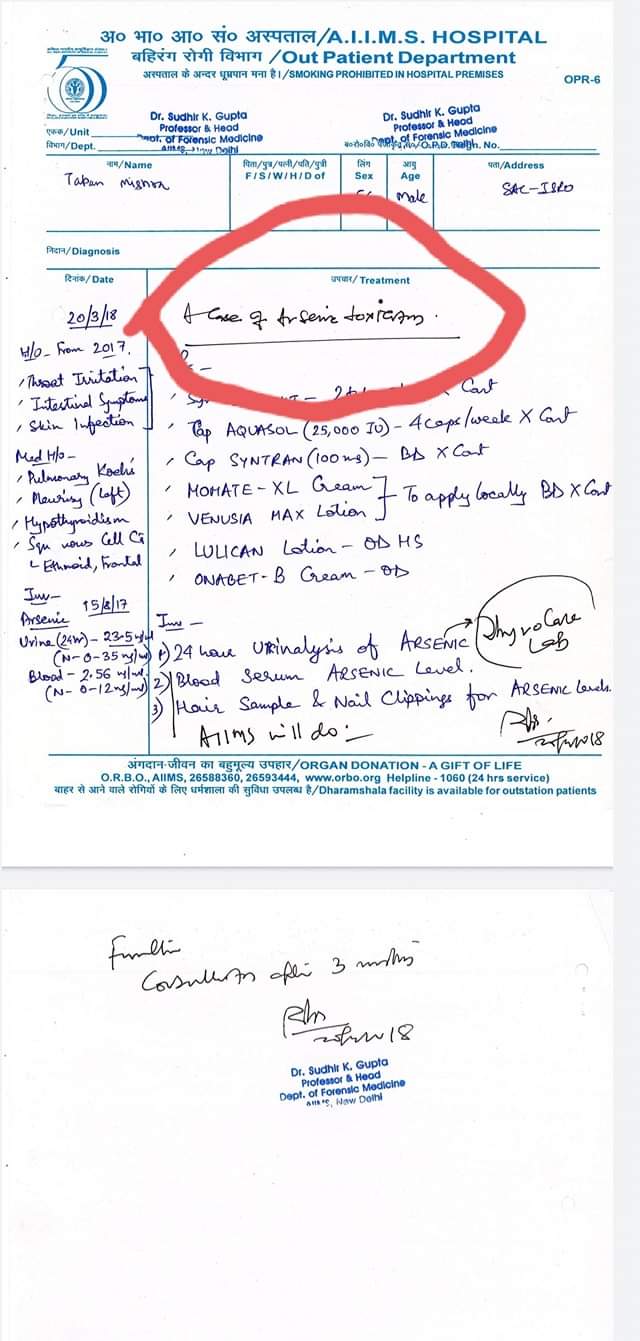 अ० भा० आ० सं० अस्पताल/A.I.I.M.S. HOSPITAL
बहिरंग रोगी विभाग /Out Patient Department
अस्पताल के अन्दर धूम्रपान मना है।/SMOKING PROHIBITED IN HOSPITAL PREMISES
OPR-6
Dr. Sudhir K. Gupta
Professor & Head
Dept. of Forensic Medicine
AIIMS, New Delhi
Dr. Sudhir K. Gupta
Professor & Head
Dept. of Forensic Medicine
एकक/Unit
विभाग/Dept.
O.P.D. Regn. No.
नाम/Name
पिता/पुत्र/पत्नी/पति/पुत्री
F/S/W/H/D of
लिंग
Sex
आयु
Age
पता/Address
Tapan Mishra
Male
SAC-ISRO
निदान/Diagnosis
दिनांक/Date
उपचार/Treatment
20/3/18
A Case of Arsenic toxicosis.
H/O - From 2017.
Throat Irritation
Intestinal Symptoms
Skin Infection
Cont
Cap AQUASOL (25,000 IU) - 4 caps/week X Cont
Cap SYNTRAN (100 mg) - BD X Cont
MOMATE-XL Cream
VENUSIA MAX Lotion
To apply locally BD X Cont
LULICAN Lotion - OD HS
ONABET-B Cream - OD
Med H/o -
Pulmonary Koch's
Pleurisy (Left)
Hypothyroidism
Squ mous Cell Ca
Ethmoid, Frontal
Inv -
Arsenic 15/8/17
Urine (24hr) - 23.5
(N-0-35 ng/ml)
Blood - 2.56 ng/ml.
(N- 0-12ng/ml)
Inv -
1) 24 hour Urinalysis of ARSENIC
Thyrocare Lab
2) Blood Serum ARSENIC Level.
3) Hair Sample & Nail Clippings for ARSENIC Levels.
AIIMS will do:-
अंगदान-जीवन का बहुमूल्य उपहार/ORGAN DONATION - A GIFT OF LIFE
O.R.B.O., AIIMS, 26588360, 26593444, www.orbo.org Helpline - 1060 (24 hrs service)
बाहर से आने वाले रोगियों के लिए धर्मशाला की सुविधा उपलब्ध है/Dharamshala facility is available for outstation patients
after 3 months
Dr. Sudhir K. Gupta
Professor & Head
Dept. of Forensic Medicine
AIIMS, New Delhi